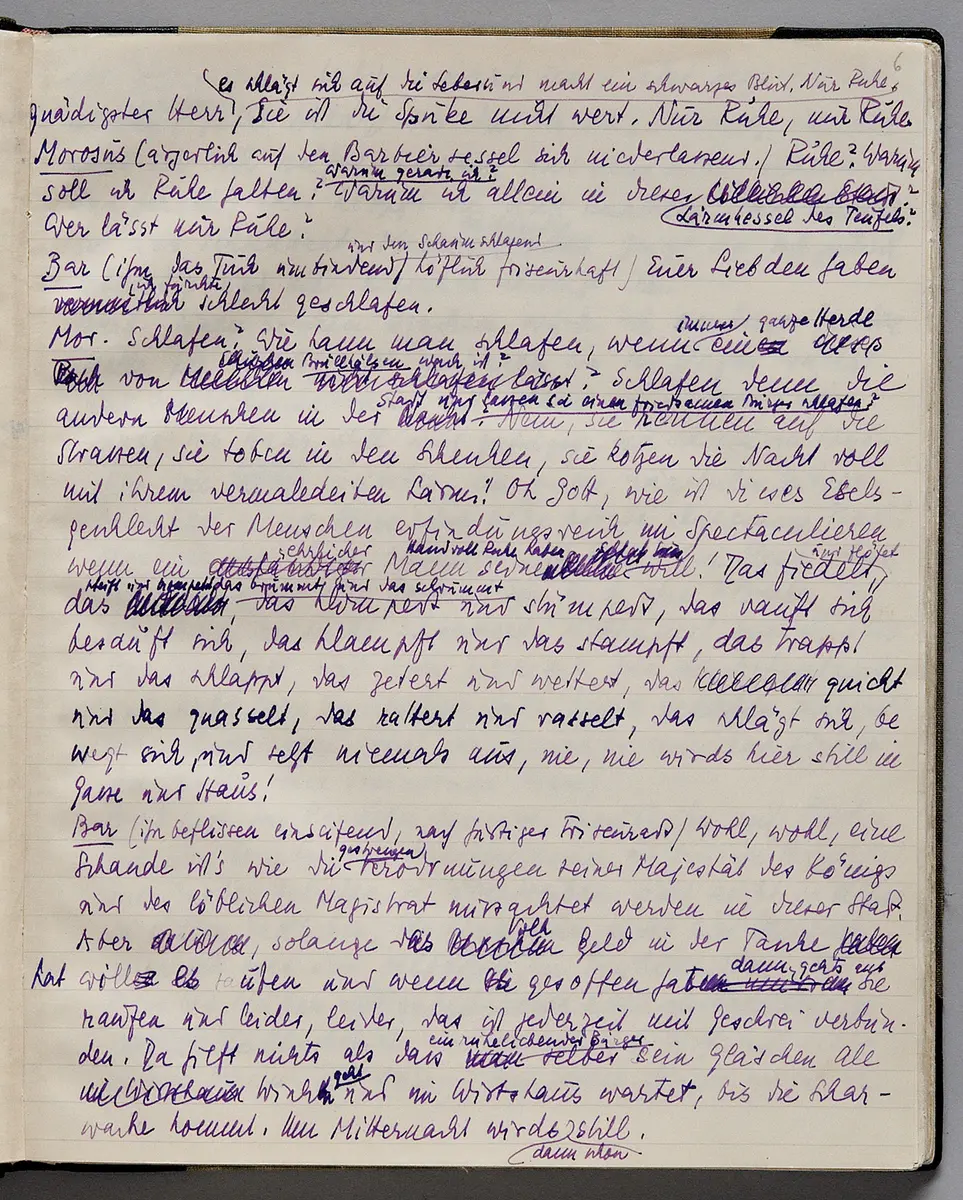 6
es schlägt sich auf die Leber und macht ein schwarzes Blut. Nur Ruhe,
gnädigster Herr, Sie ist die Spucke nicht wert. Nur Ruhe, nur Ruhe
Morosus (ärgerlich auf den Barbiersessel sich niederlassend.) Ruhe? Warum
warum gerade ich?
soll ich Ruhe halten? Warum ich allein in dieser
Lärmkessel des Teufels?
Wer lässt mir Ruhe?
und den Schaum schlagend
Bar (ihm das Tuch umbindend, höflich friseurhaft) Euer Liebden haben
ich fürchte
vermutlich schlecht geschlafen.
immer ganze Herde
Mor. Schlafen? Wie kann man schlafen, wenn eine
Brüllhälsen wach ist?
von schlafen lässt? Schlafen denn die
Stadt und lassen sie einen friedsamen Bürger schlafen?
andern Menschen in der Nein, sie rennen auf die
Strassen, sie toben in den Schenken, sie kotzen die Nacht voll
mit ihrem vermaledeiten Lärm! Oh Gott, wie ist dieses Esels-
geschlecht der Menschen erfindungsreich im Spectaculieren
ehrlicher Handvoll Ruhe haben und flötet
wenn ein anständiger Mann seine will! Das fiedelt,
pfeift und trompetet, das brummt und das schrummt
das das klimpert und stümpert, das rauft sich
besäuft sich, das klampft und das stampft, das trappt
und das schlappt, das zetert und wettert, das quickt
und das quasselt, das rattert und rasselt, das schlägt sich, be
wegt sich, und setzt niemals aus, nie, nie wirds hier still in
Gasse und Haus!
Bar (ihn beflissen einseifend, nach hurtiger Friseurart) Wohl, wohl, eine
gestrengen
Schande ist's wie die Verordnungen seiner Majestät des Königs
und des löblichen Magistrat missachtet werden in dieser Stadt.
Volk
Aber solange das Geld in der Tasche haben
dann gehts los
hat will es saufen und wenn sie gesoffen haben sie
raufen und leider, leider, das ist jederzeit mit Geschrei verbun-
ein ruheliebender Bürger
den. Da hilft nichts als dass man selber sein Gläschen Ale
geht
trinken und im Wirtshaus wartet, bis die Schar-
wache kommt. Um Mitternacht wirds still.
dann schon